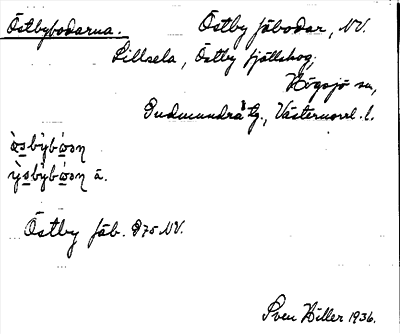 Östbybodarna. Östby fäbodar, NV.
Lillsela, Östby fjällskog,
Högsjö sn,
Gudmundrå tg., Västernorrl. l.
Östby fäb. 975 NV.
Sven Hiller 1936.